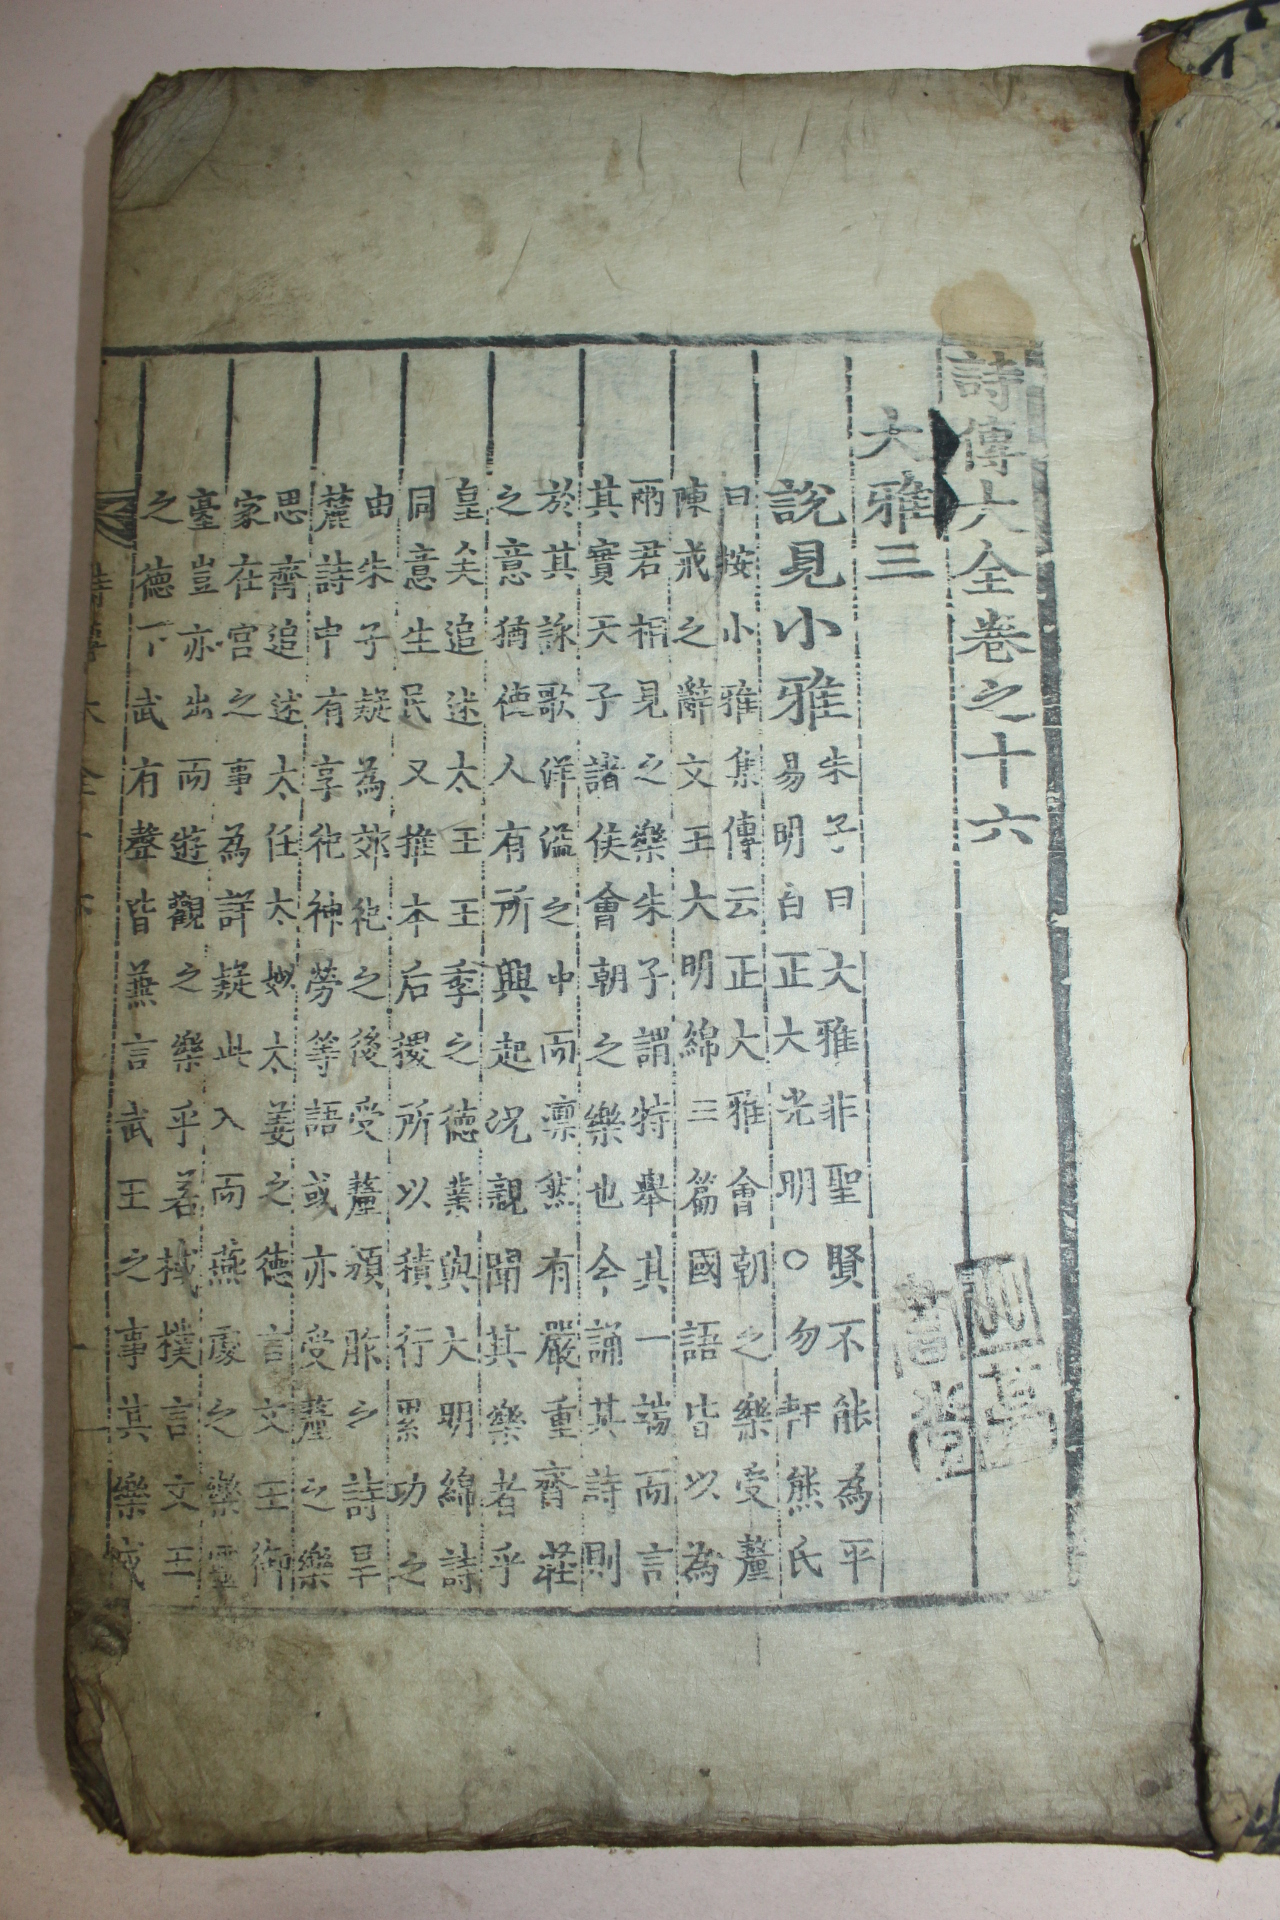 詩傳大全卷之十六
大雅三
說見小雅
朱子曰大雅非聖賢不能為平
易明白正大光明○勿軒熊氏
曰按小雅集傳云正大雅會朝之樂受釐
陳戒之辭文王大明綿三篇國語皆以為
兩君相見之樂朱子謂特舉其一端而言
其實天子諸侯會朝之樂也今誦其詩則
於其詠歌洋溢之中而凛然有嚴重齊莊
之意猶德人有所興起况親聞其樂者乎
皇矣追述太王王季之德業與大明綿詩
同意生民又推本后稷所以積行累功之
由朱子疑為郊祀之後受釐頒胙之詩旱
麓詩中有享祀神勞等語或亦受釐之樂
思齊追述太任太姒太姜之德言文王御
家在宮之事為詳疑此入而燕處之樂靈
臺豈亦出而遊觀之樂乎若棫樸言文王
之德下武有聲皆兼言武王之事其樂或